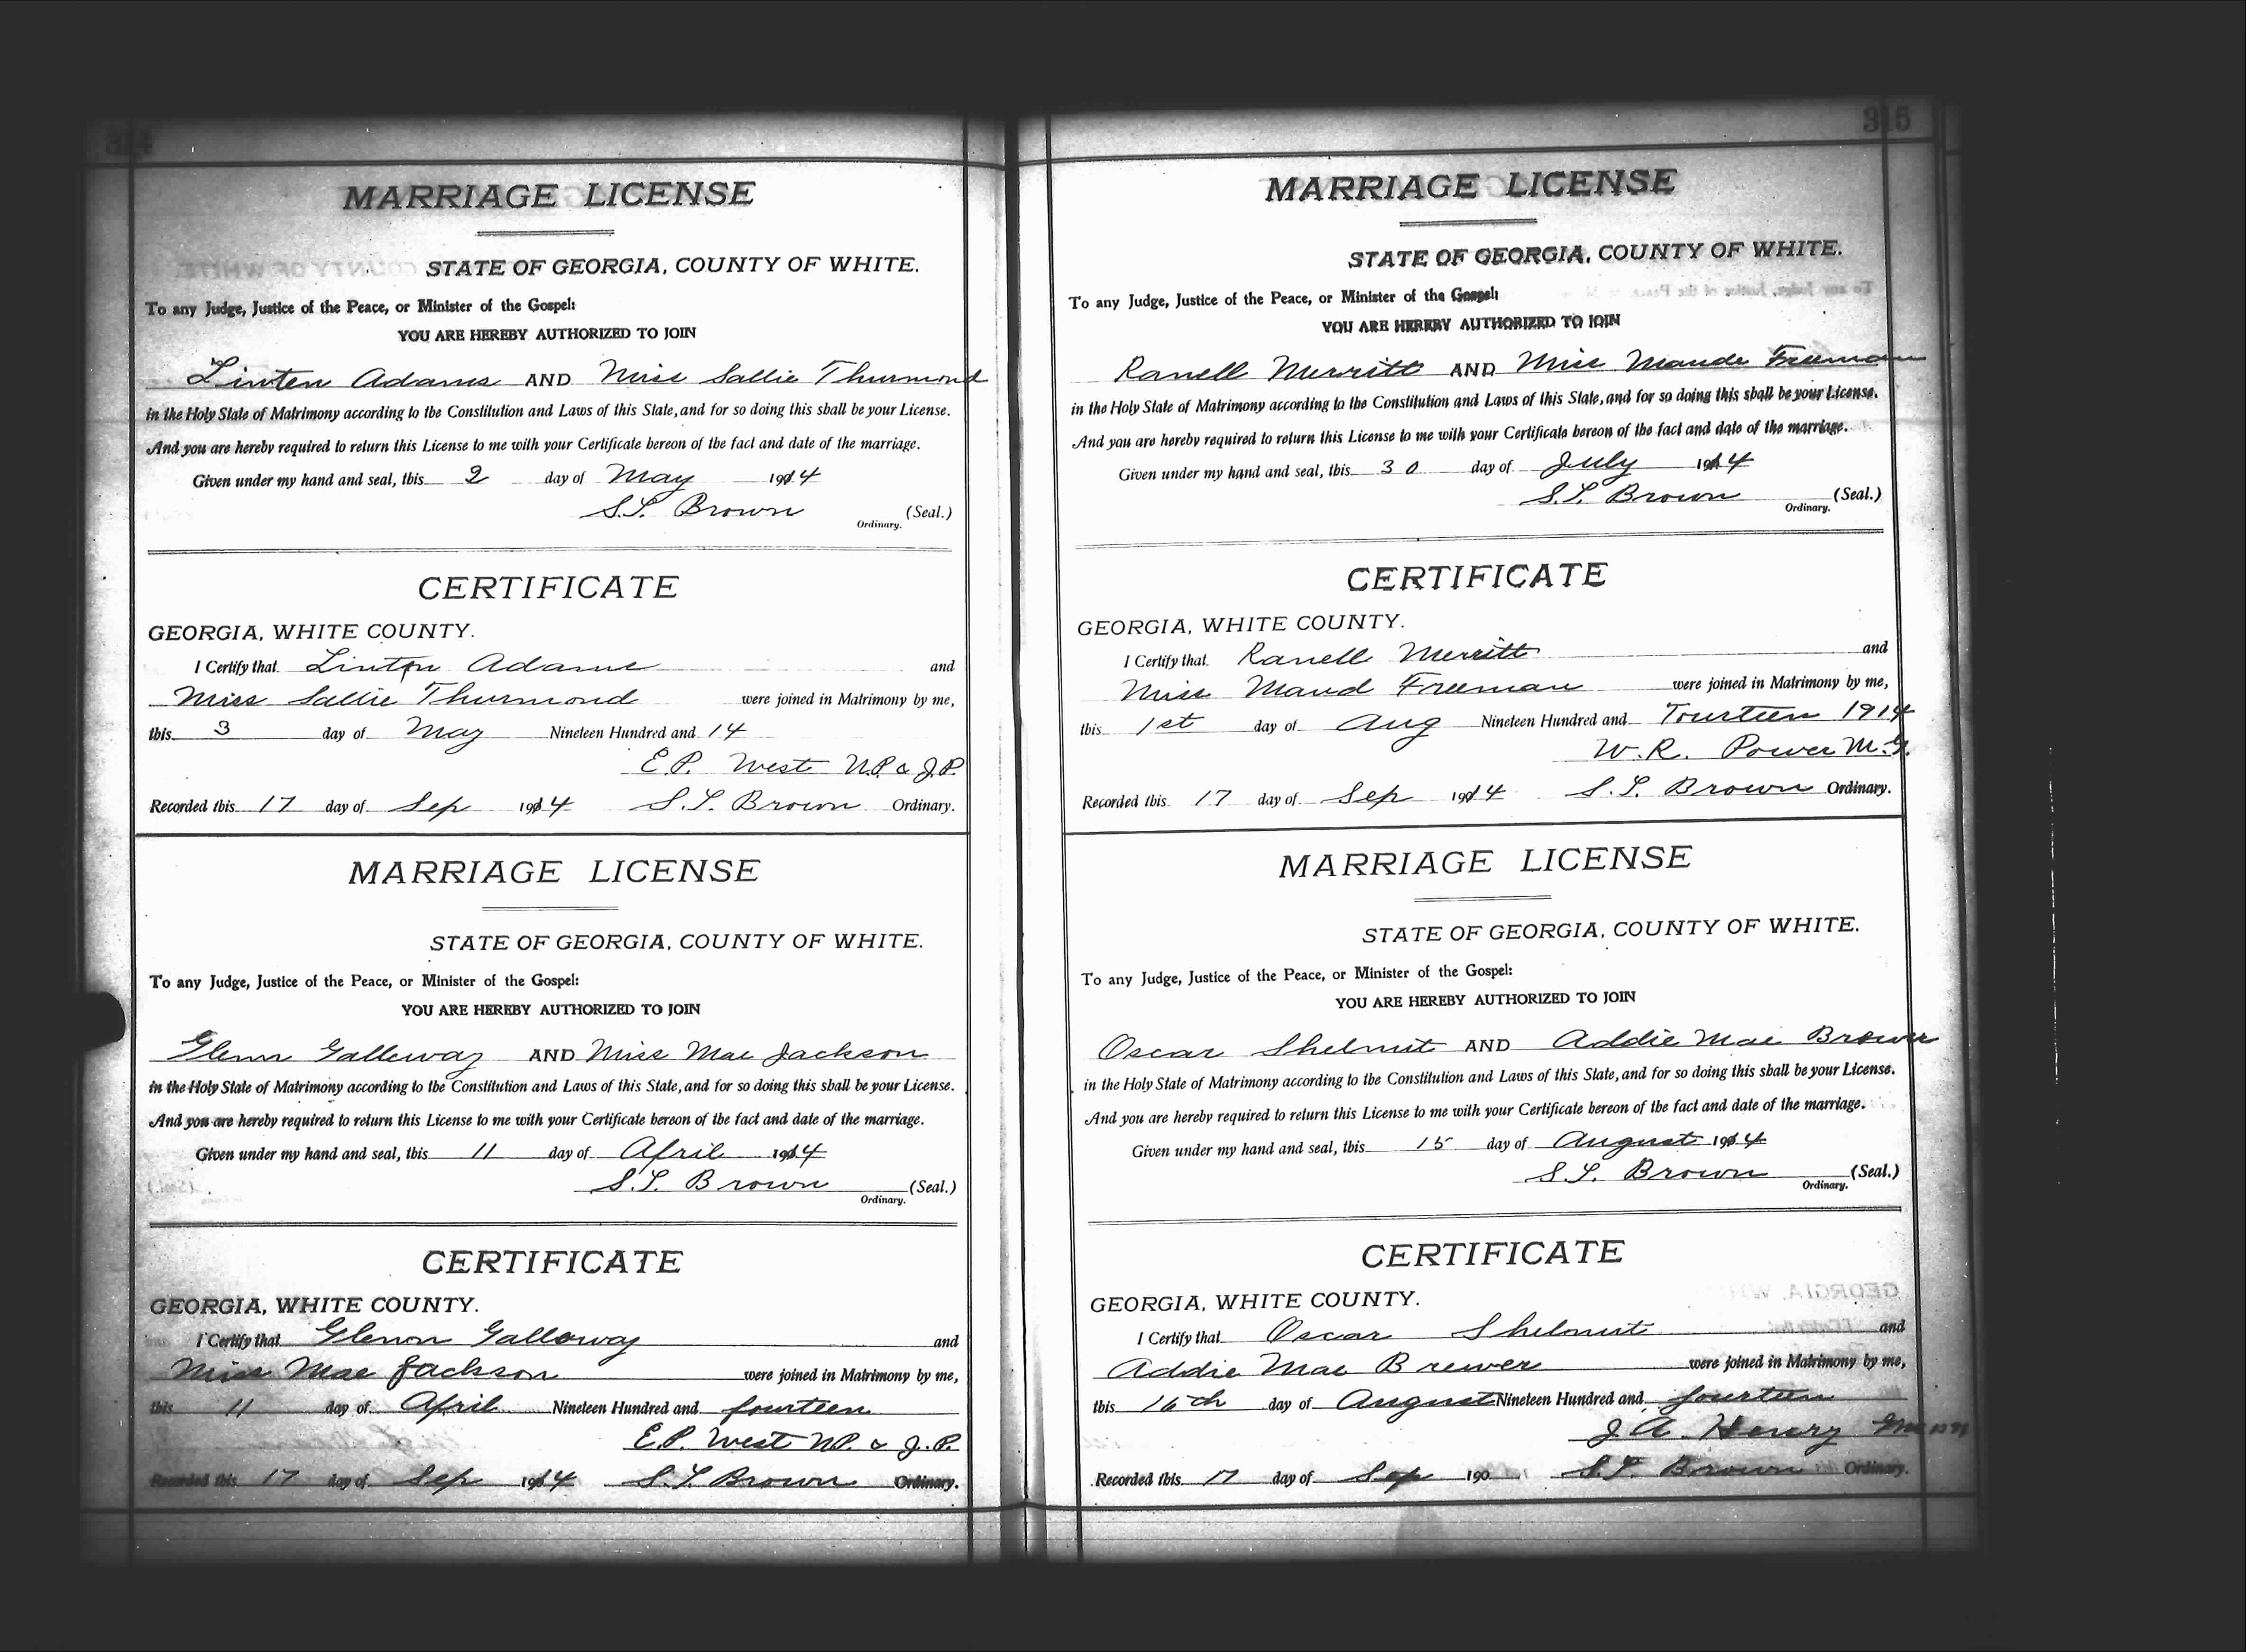 314
MARRIAGE LICENSE
STATE OF GEORGIA, COUNTY OF WHITE.
To any Judge, Justice of the Peace, or Minister of the Gospel:
YOU ARE HEREBY AUTHORIZED TO JOIN
Linten Adams AND Miss Sallie Thurmond
in the Holy State of Matrimony according to the Constitution and Laws of this State, and for so doing this shall be your License.
And you are hereby required to return this License to me with your Certificate hereon of the fact and date of the marriage.
Given under my hand and seal, this 2 day of May 1914
S.L. Brown (Seal.)
Ordinary.
CERTIFICATE
GEORGIA, WHITE COUNTY.
I Certify that Linton Adams and
Miss Sallie Thurmond were joined in Matrimony by me,
this 3 day of May Nineteen Hundred and 14
E.P. West N.P. & J.P.
Recorded this 17 day of Sep 1914 S.L. Brown Ordinary.
MARRIAGE LICENSE
STATE OF GEORGIA, COUNTY OF WHITE.
To any Judge, Justice of the Peace, or Minister of the Gospel:
YOU ARE HEREBY AUTHORIZED TO JOIN
Glenn Galloway AND Miss Mae Jackson
in the Holy State of Matrimony according to the Constitution and Laws of this State, and for so doing this shall be your License.
And you are hereby required to return this License to me with your Certificate hereon of the fact and date of the marriage.
Given under my hand and seal, this 11 day of April 1914
S.L. Brown (Seal.)
Ordinary.
CERTIFICATE
GEORGIA, WHITE COUNTY.
I Certify that Glenn Galloway and
Miss Mae Jackson were joined in Matrimony by me,
this 11 day of April Nineteen Hundred and fourteen
E.P. West N.P. & J.P.
Recorded this 17 day of Sep 1914 S.L. Brown Ordinary.
315
MARRIAGE LICENSE
STATE OF GEORGIA, COUNTY OF WHITE.
To any Judge, Justice of the Peace, or Minister of the Gospel:
YOU ARE HEREBY AUTHORIZED TO JOIN
Ranell Merritt AND Miss Maude Freeman
in the Holy State of Matrimony according to the Constitution and Laws of this State, and for so doing this shall be your License.
And you are hereby required to return this License to me with your Certificate hereon of the fact and date of the marriage.
Given under my hand and seal, this 30 day of July 1914
S.L. Brown (Seal.)
Ordinary.
CERTIFICATE
GEORGIA, WHITE COUNTY.
I Certify that Ranell Merritt and
Miss Maud Freeman were joined in Matrimony by me,
this 1st day of Aug Nineteen Hundred and Fourteen 1914
W.R. Power M.G.
Recorded this 17 day of Sep 1914 S.L. Brown Ordinary.
MARRIAGE LICENSE
STATE OF GEORGIA, COUNTY OF WHITE.
To any Judge, Justice of the Peace, or Minister of the Gospel:
YOU ARE HEREBY AUTHORIZED TO JOIN
Oscar Shelnut AND Addie Mae Brewer
in the Holy State of Matrimony according to the Constitution and Laws of this State, and for so doing this shall be your License.
And you are hereby required to return this License to me with your Certificate hereon of the fact and date of the marriage.
Given under my hand and seal, this 15 day of August 1914
S.L. Brown (Seal.)
Ordinary.
CERTIFICATE
GEORGIA, WHITE COUNTY.
I Certify that Oscar Shelnut and
Addie Mae Brewer were joined in Matrimony by me,
this 16th day of August Nineteen Hundred and fourteen
J.A. Henry
Recorded this 17 day of Sep 190 S.L. Brown Ordinary.